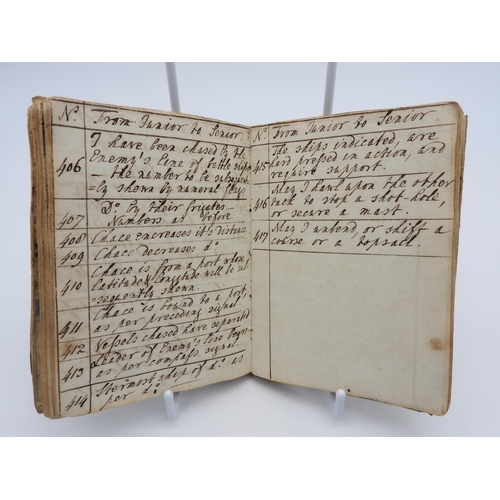 No. From Junior to Senior
I have been chased by the
Enemy's Line of battle ships
406 — the number to be subsequent
=ly shewn by numeral flags
Do. by their frigates —
407 Numbers as before
408 Chace encreases it's distance
409 Chace decreases do.
Chace is from a port whose
410 Latitude & Longitude will be sub
=sequently shewn.
411 Chace is bound to a port,
as per preceding signal
412 Vessels chased have separated
Leader of Enemy's line bears
413 as per compass signal
414 Sternmost ships of do. as
per do.
No. From Junior to Senior
The ships indicated, are
415 hard pressed in action, and
require support.
May I haul upon the other
416 tack to stop a shot-hole,
or secure a mast.
417 May I unbend or shift a
course or a topsail.